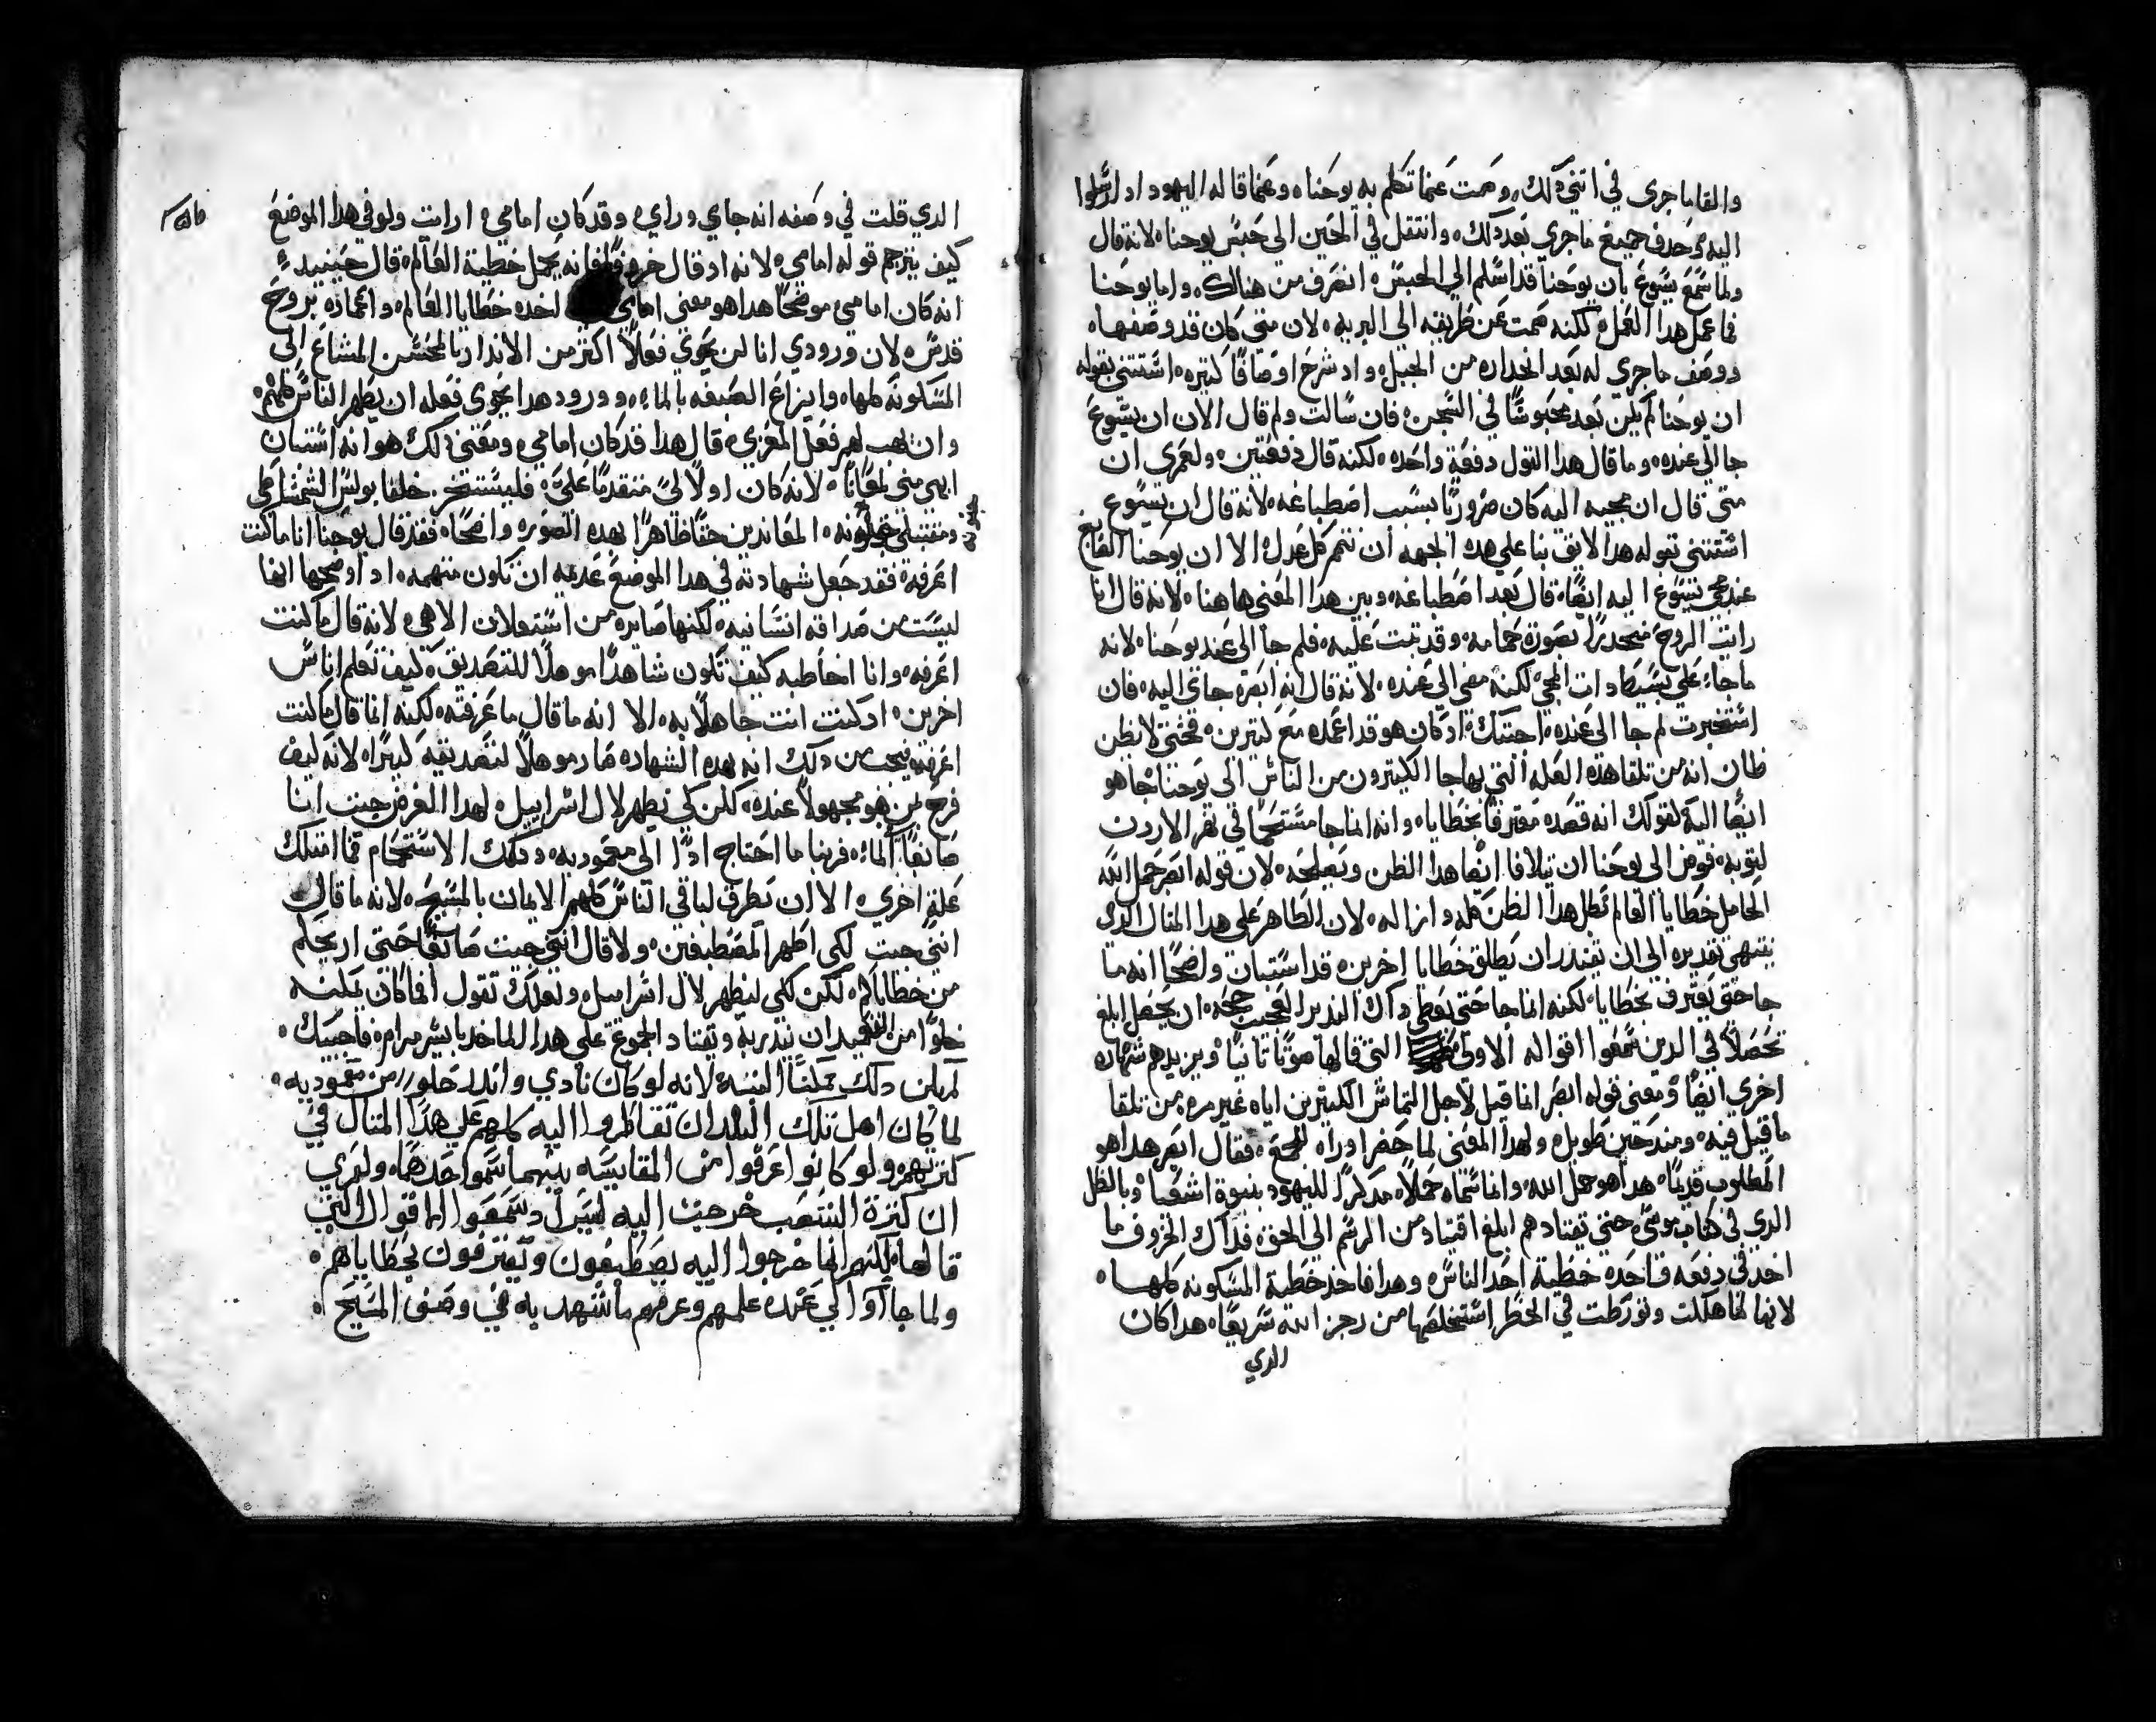 والقا ما جرى في اثني ذلك، وصمت عنما تكلم به يوحنا ه وعنما قاله اليهود اد ارسلوا
اليه وحدف جميع ما جري بعد دلك ه وانتقل في الحين الي حبس يوحنا ه لانه قال
ولما سمع يسوع بان يوحنا قد اسلم الي الحبس ه انصرف من هنالك ه واما يوحنا
فما عمل هدا العمل ه لكنه صمت عن طريقه الي البريه ه لان متي كان قد وصفها ه
ووصف ما جري له بعد انحداره من الجبل ه واد شرح اوصافا كتيره ه استتني بقوله
ان يوحنا لم يكن بعد محبوسا في السجن ه فان سالت ولم قال الان ان يسوع
جا الي عنده ه وما قال هدا القول دفعة واحده ه لكنه قال دفعتين ه ولعمري ان
متي قال ان مجيه اليه كان ضروريا بسبب اصطباغه ه لانه قال ان يسوع
استتني بقوله هدا لايق بنا علي هده الجهه ان نتمم كل عدل ه الا ان يوحنا
عند مجي يسوع اليه ايضا ه قال بعد اصطباغه ه وبين هدا المعني هاهنا ه لانه قال انا
رايت الروح منحدرا بصورة حمامه ه وقد تمت عليه ه فلم جا الي عند يوحنا ه لانه
ما جا علي بسيط دات المجي ه لكنه مضي الي عنده ه لانه قال انه ابصره جاي اليه ه فان
استخبرت لم جا الي عنده ه اجبتك ه اد كان هو قد اعمده مع كتيرين ه فحتي لا يظن
ظان انه من تلقا هده العله التي بها جا الكتيرون من الناس الي يوحنا ه جا هو
ايضا اليه كقولك انه قصده معترفا بخطاياه ه وانه انما جا مستحما في نهر الاردن
لتوبه ه فوض الي يوحنا ان يتلافا ايضا هدا الظن ويصلحه ه لان قوله ابصر حمل الله
الحامل خطايا العالم بطل هدا الظن كله وازاله ه لان الظاهر علي هدا المتال الدي
ينتهي تقديره الي ان يقتدر ان يطلق خطايا اخرين ه قد استبان واضحا انه ما
جا حتي يعترف بخطاياه ه لكنه انما جا حتي يعطي داك الندير العجيب حجه ه ان يحصل ابلغ
تحصلا في الدين سمعوا اقواله الاولي التي قالها صوتا تانيا ه ويزيدهم شهاده
اخري ايضا ه ومعني قوله ابصر انما قيل لاجل التماس الكتيرين اياه غير مره ه من تلقا
ما قيل فيه ه ومند حين طويل ه ولهدا المعني لما حضر اوراه للجمع ه فقال ابصر هدا هو
المطلوب قديما ه هدا هو حمل الله ه وانما سماه حملا ه مدكرا لليهود بنبوة اشعيا ه وبالظل
الدي في كتاب موسي ه حتي يقتادهم ابلغ اقتياد من الرسم الي الحق ه فداك الخروف ما
اخد في دفعه واحده خطية احد الناس ه وهدا فاخد خطية المسكونه كلها ه
لانها لما هلكت وتورطت في الخطر استخلصها من رجز الله سريعا ه هدا كان
الدي
الدي قلت في وصفه انه جاي وراي ه وقد كان امامي ه ارايت ولو في هدا الموضع
كيف يترجم قوله امامي ه لانه اد قال خروفا فانه يحمل خطية العالم ه قال حينيد
انه كان امامي موضحا هدا هو معني امامي اخده خطايا العالم ه واعماده بروح
قدس ه لان ورودي انا لن يحوي فعلا اكتر من الاندار بالمحسن المشاع الي
المسكونة كلها ه وايزاع الصبغه بالماء ه وورود هدا يحوي فعله ان يطهر الناس كلهم ه
وان يهب لهم فعل المعزي ه قال هدا قد كان امامي ه ومعني دلك هو انه استبان
ابهي مني لمعانا ه لانه كان اولا لي متقدما علي ه فليستخز خلفا بولس الشمشاطي
ومقتبلي جنونه ه المعاندين حقا ظاهرا بهده الصوره واضحا ه فقد قال يوحنا انا ما كنت
اعرفه ه فقد جعل شهادته في هدا الموضع عديمه ان تكون متهمه ه اد اوضحها انها
ليست من صداقه انسانيه ه لكنها صايره من استعلان الاهي ه لانه قال ما كنت
اعرفه ه وانا اخاطبه كيف تكون شاهدا موهلا للتصديق ه كيف تعلم اناس
اخرين ه اد كنت انت جاهلا به ه الا انه ما قال ما عرفته ه لكنه انما قال ما كنت
اعرفه ه فيجب من دلك انه بهده الشهاده صار موهلا لتصديقه كتيرا ه لانه كيف
فرح بمن هو مجهولا عنده ه لكن لكي يظهر لال اسراييل ه لهدا الغرض جيت انا
صابغا بالماء ه فربنا ما احتاج ادا الي معموديه ه ودلك الاستحمام فما امتلك
علة اخري ه الا ان يطرق لباقي الناس كلهم الايمان بالمسيح ه لانه ما قال
انني جيت لكي اطهر المصطبغين ه ولا قال انني جيت صابغا حتي اريحكم
من خطاياكم ه لكن لكي ليظهر لال اسراييل ه ولعلك تقول افما كان يمكنه
خلوا من التعميد ان يندر به ويقتاد الجموع علي هدا الماخد بايسر مرام ه فاجيبك ه
لم يكن دلك ممكنا البته ه لانه لو كان نادي واندر خلوا من معموديه ه
لما كان اهل تلك البلدان تقاطروا اليه كلهم علي هدا المتال في
كترتهم ه ولو كانوا اعرفوا من المقايسه بينهما سموا احدهما ه ولعمري
ان كترة الشعب خرجت اليه ليس لا يسمعوا الاقوال التي
قالها ه لكنهم انما خرجوا اليه يصطبغون ويعترفون بخطاياهم ه
ولما جااوا الي عنده علمهم وعرفهم ما شهد به في وصف المسيح ه